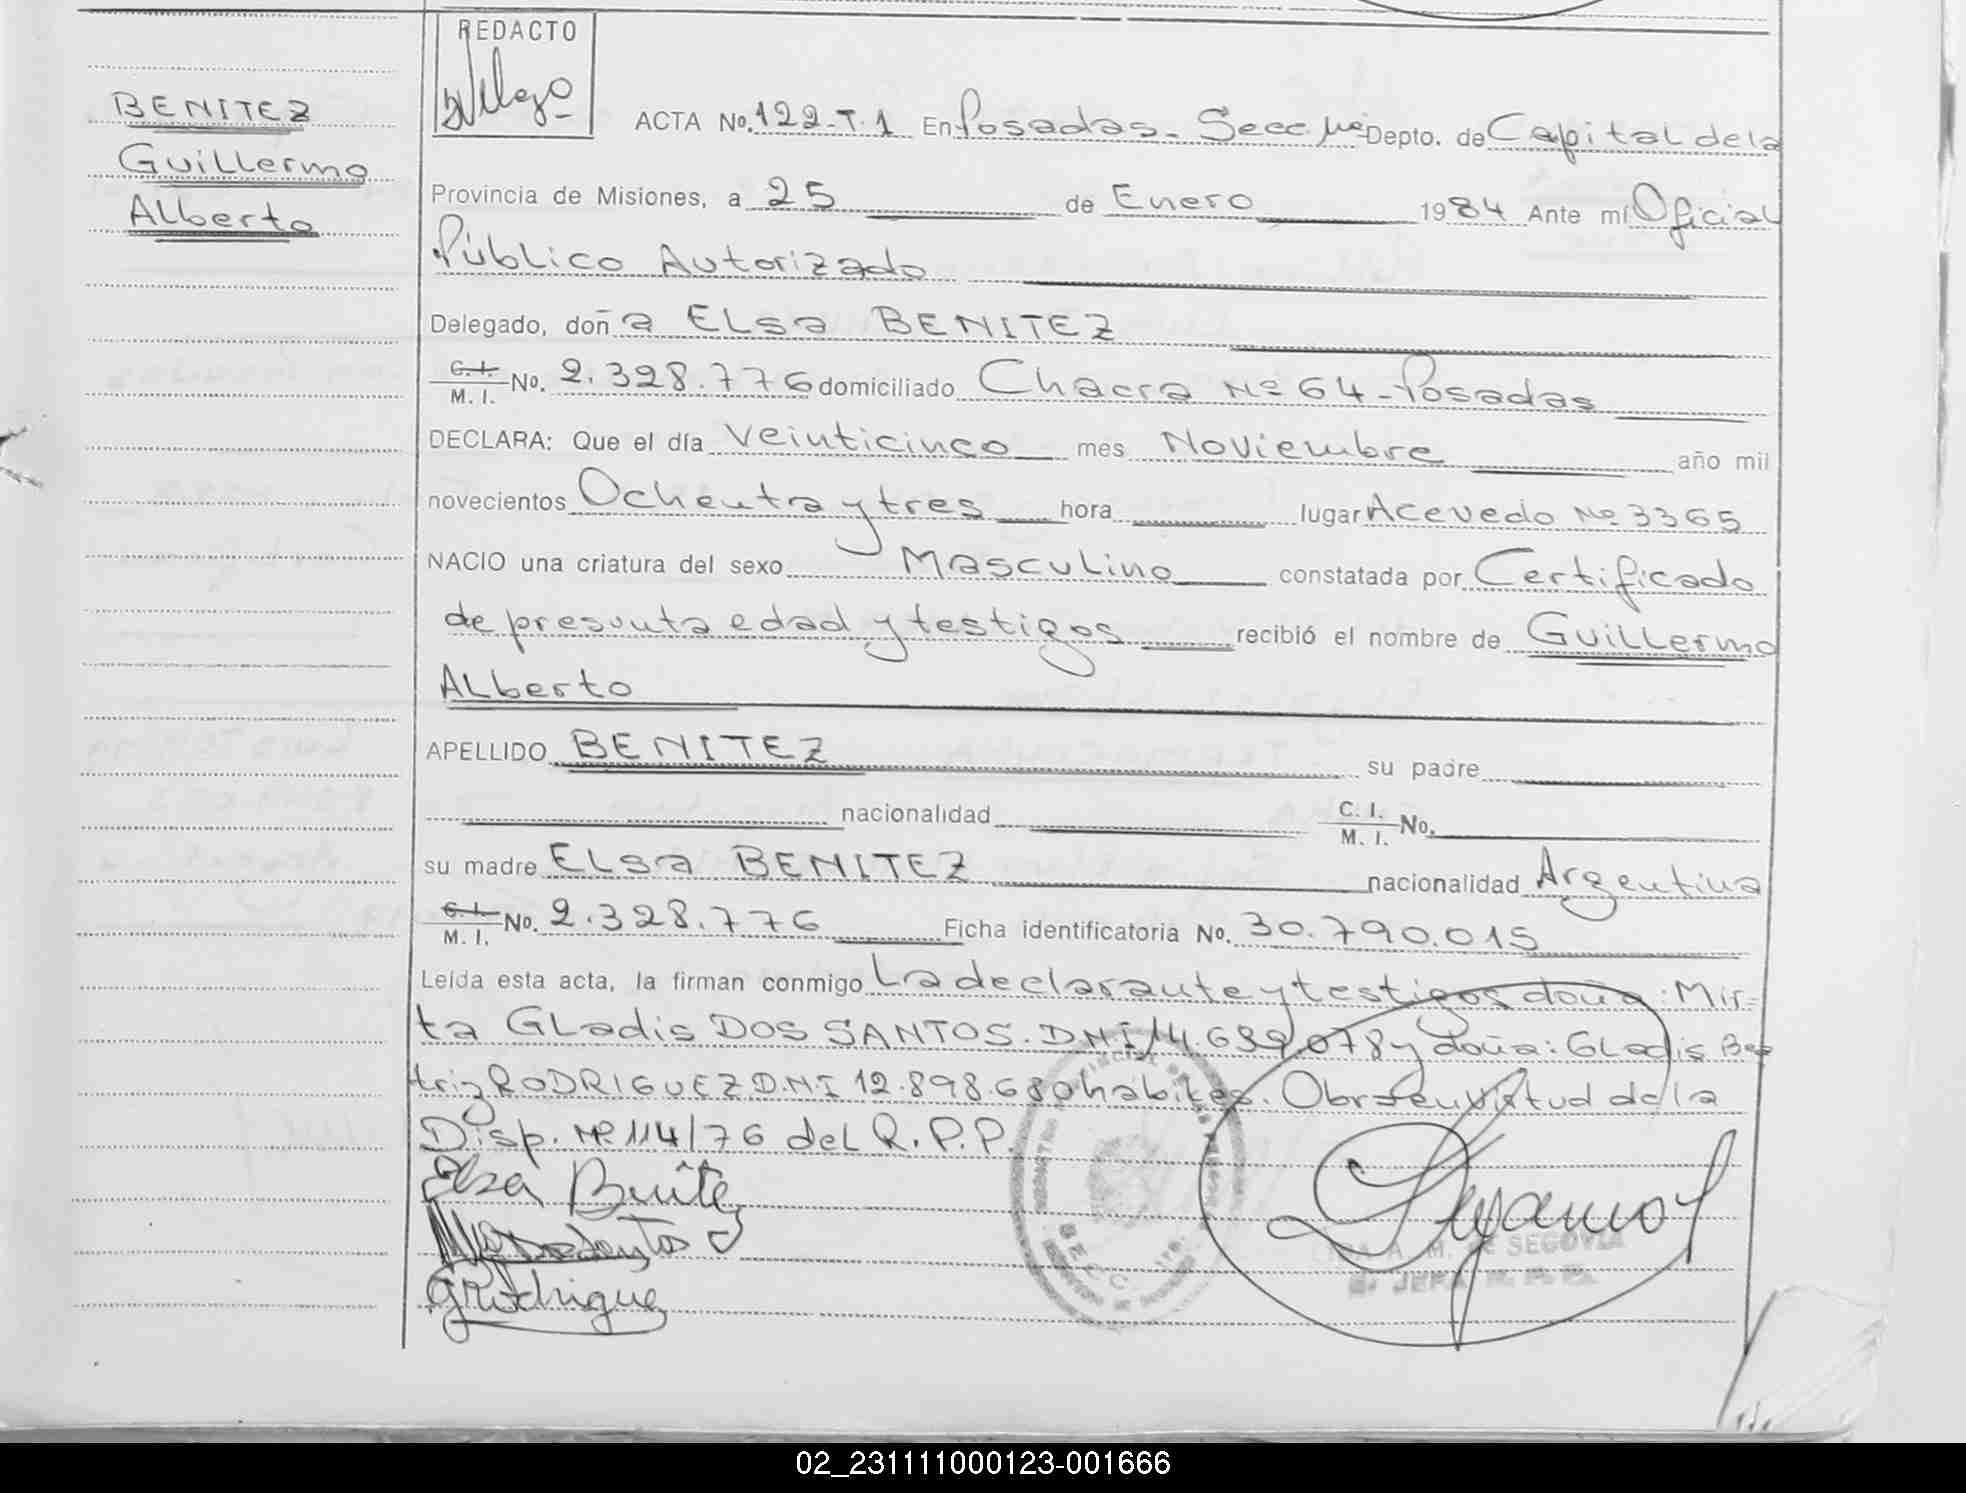 REDACTO
BENITEZ
Guillermo
Alberto
ACTA No. 122-T.1 En Posadas - Secc. 1ra Depto. de Capital de la
Provincia de Misiones, a 25 de Enero 1984 Ante mí Oficial
Público Autorizado
Delegado, doña ELsa BENITEZ
C. I.
M. I. No. 2.328.776 domiciliado Chacra Nº 64 - Posadas
DECLARA: Que el día Veinticinco mes Noviembre año mil
novecientos Ochenta y tres hora lugar Acevedo Nº 3365
NACIO una criatura del sexo Masculino constatada por Certificado
de presunta edad y testigos recibió el nombre de Guillermo
Alberto
APELLIDO BENITEZ su padre
nacionalidad C. I.
M. I. No.
su madre ELsa BENITEZ nacionalidad Argentina
C. I.
M. I. No. 2.328.776 Ficha identificatoria No. 30.790.015
Leída esta acta, la firman conmigo La declarante y testigos doña: Mir=
ta GLadis DOS SANTOS. DNI 14.639.078 y doña: GLadis Bea
triz RODRIGUEZ D.N.I 12.898.680 habiles. Obra en virtud de la
Disp. Nº 114/76 del R.P.P.
Elsa Benitez
GRodriguez
A. M. de SEGOVIA
JEFA R. P. P.
02_231111000123-001666